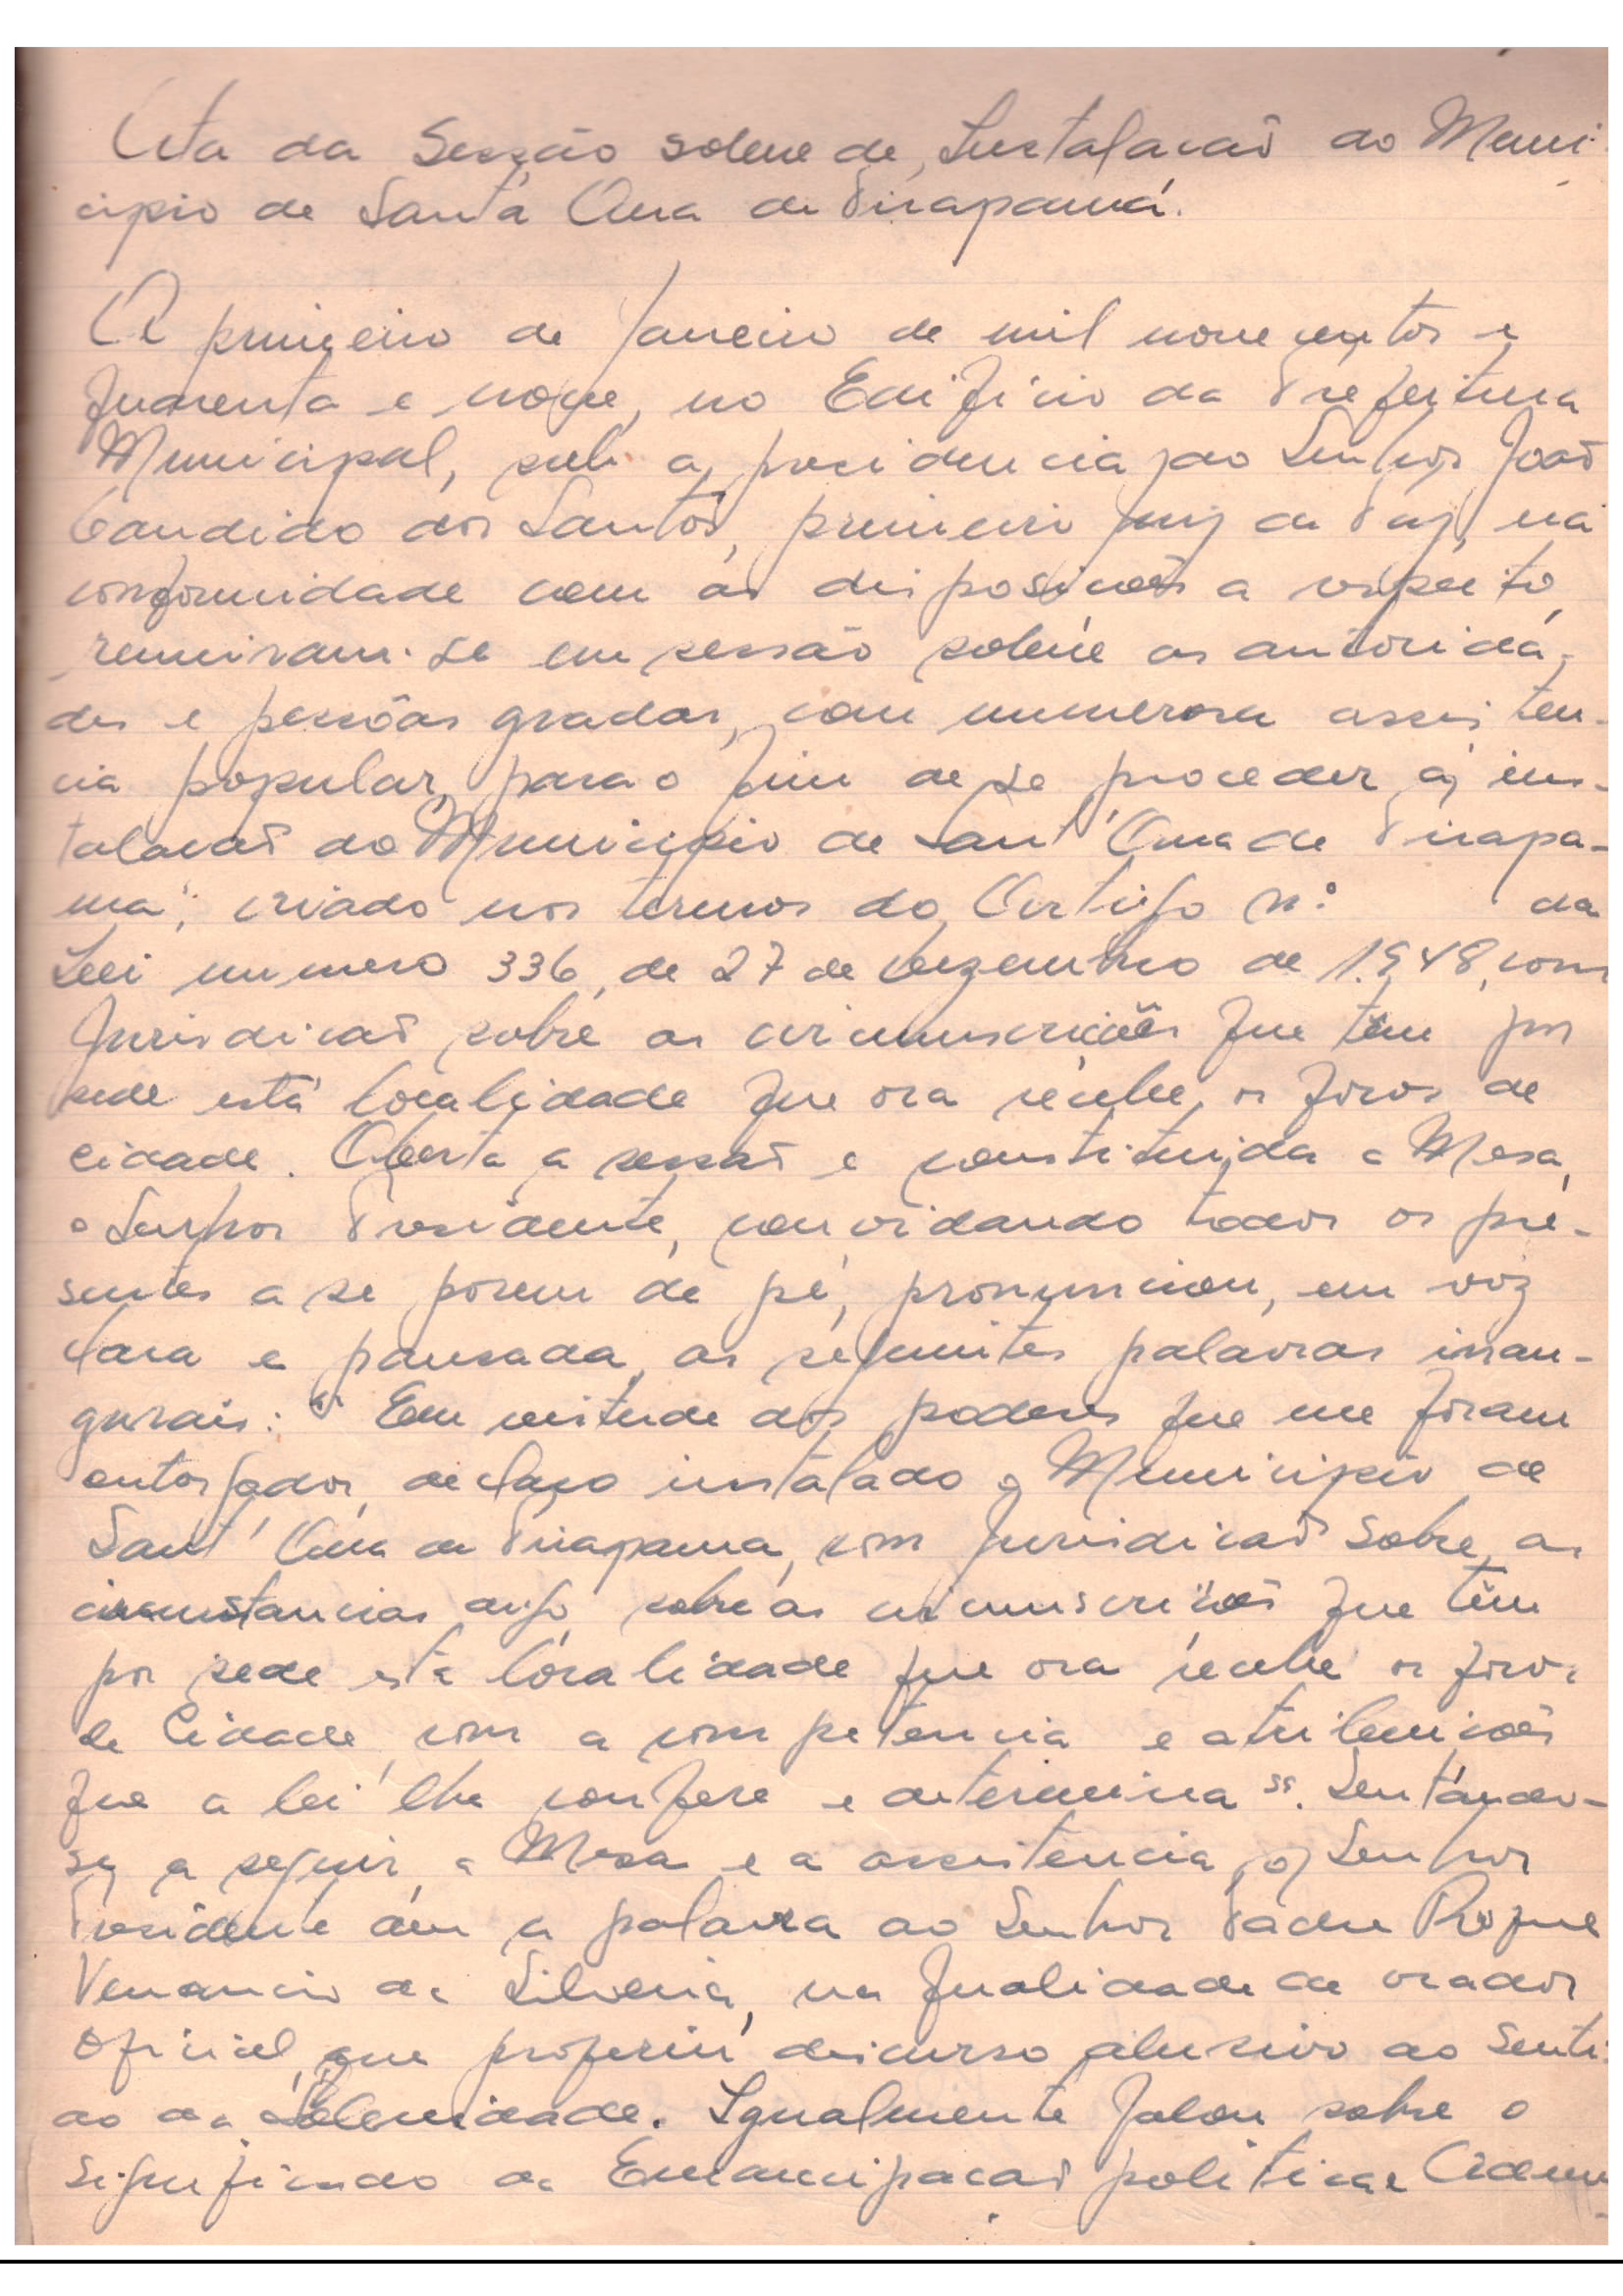 Ata da Secção solene de Instalacaõ do Muni-
cipio de Santa Ana de Pirapamá.
A primeiro de Janeiro de mil novecentos e
quarenta e nove, no Edificio da Prefeitura
Municipal, sob a presidencia do Senhor João
Candido dos Santos, primeiro juiz de Paz, na
conformidade com as disposicoẽs a respeito,
reuniram-se em sessão solene as autorida-
des e pessôas gradas, com numerosa assisten-
cia popular, para o fim de se proceder a ins-
talacaõ do Municipio de Sant'Ana de Pirapa-
ma, criado nos termos do Artigo n.º da
Lei numero 336, de 27 de Dezembro de 1.948, com
Jurisdicaõ sobre as circunscricões que têm por
sede está localidade que ora recebe os foros de
cidade. Aberta a sessaõ e constituida a Mesa,
o Senhor Presidente, convidando todos os pre-
sentes a se porem de pé, pronunciou, em voz
clara e pausada, as seguintes palavras inau-
gurais: "Em virtude dos poderes que me foram
outorgados, declaro instalado o Municipio de
Sant'Ana de Pirapama, com Jurisdicaõ sobre as
circunstancias digo, sobre as circunscricoẽs que têm
por sede esta localidade que ora recebe os foros
de Cidade, com a competencia e atribuicoẽs
que a lei lhe confere e determina". Sentando-
se, a seguir, a Mesa e a assistencia, o Senhor
Presidente deu a palavra ao Senhor Padre Roque
Venancio da Silveira, na qualidade de orador
oficial, que proferiu discurso alusivo ao senti-
do da Solenidade. Igualmente falou sobre o
significado da Emancipacaõ politica e Adm